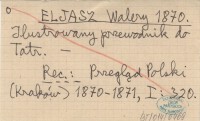 ELJASZ Walery 1870.
Ilustrowany przewodnik do
Tatr. —
Rec.: Przegląd Polski
(Kraków) 1870-1871, I: 320.